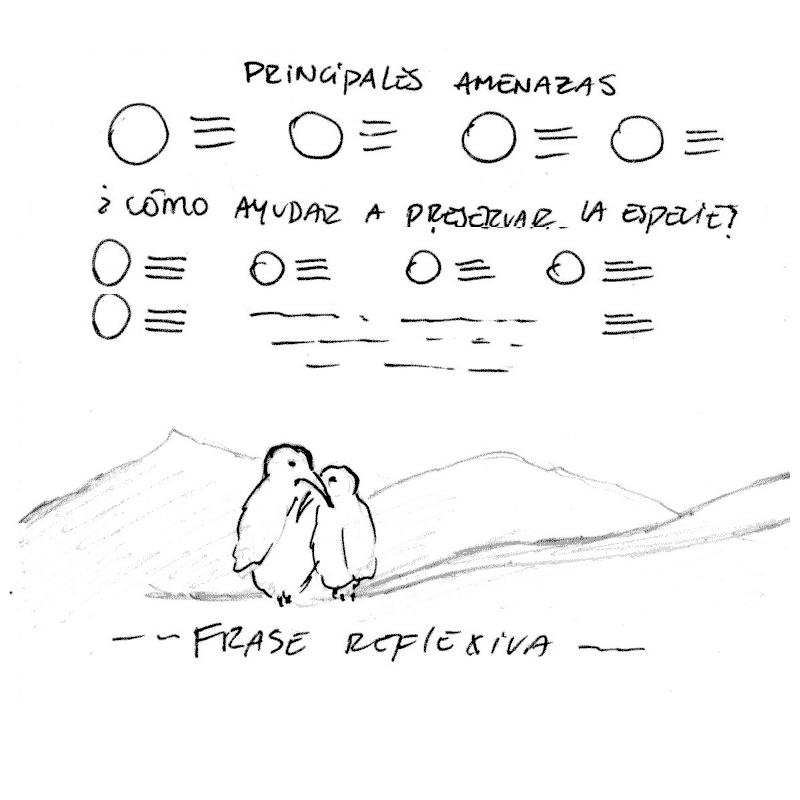 PRINCIPALES AMENAZAS
¿CÓMO AYUDAR A PRESERVAR LA ESPECIE?
FRASE REFLEXIVA